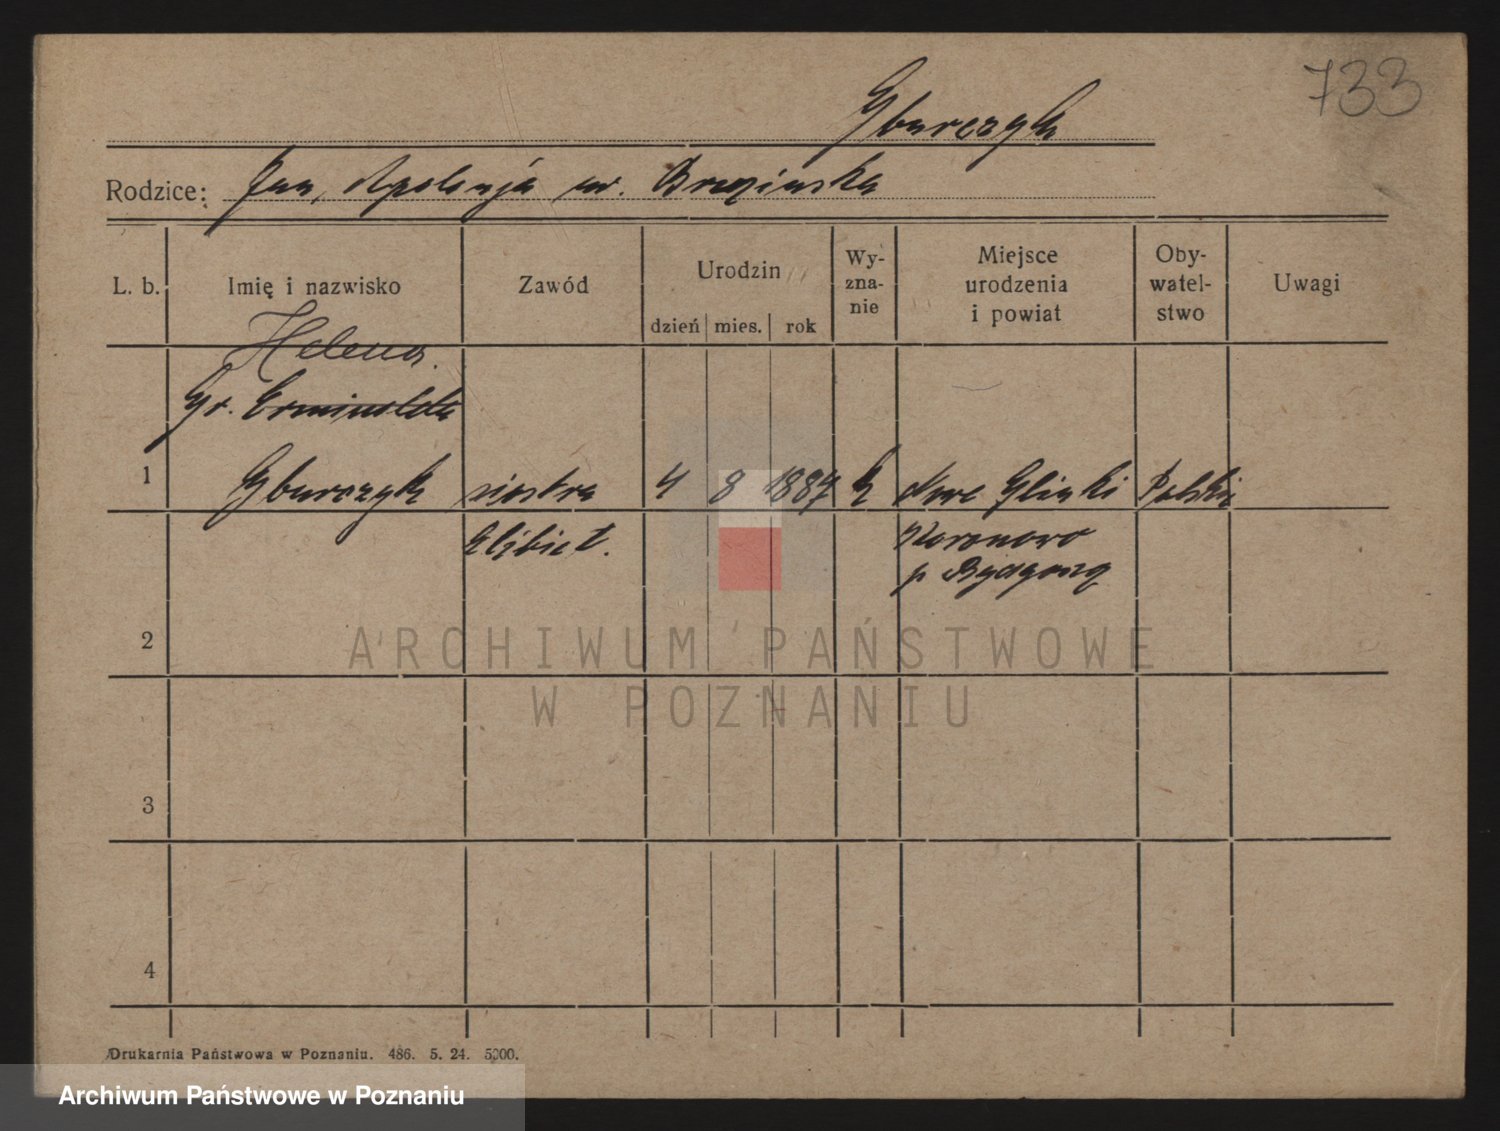 733
Gburczyk
Rodzice: Jan, Apolonja ur. Brezinska
L. b.
Imię i nazwisko
Zawód
Urodzin
dzień mies. rok
Wy-
zna-
nie
Miejsce
urodzenia
i powiat
Oby-
watel-
stwo
Uwagi
Helena.
Gr. Erminolda
1 Gburczyk siostra 4 8 1887 k Nowe Glinki Polskie
Elżbiet. Koronowo
p Bydgoszcz
2
3
4
Drukarnia Państwowa w Poznaniu. 486. 5. 24. 5000.
ARCHIWUM PAŃSTWOWE
W POZNANIU
Archiwum Państwowe w Poznaniu